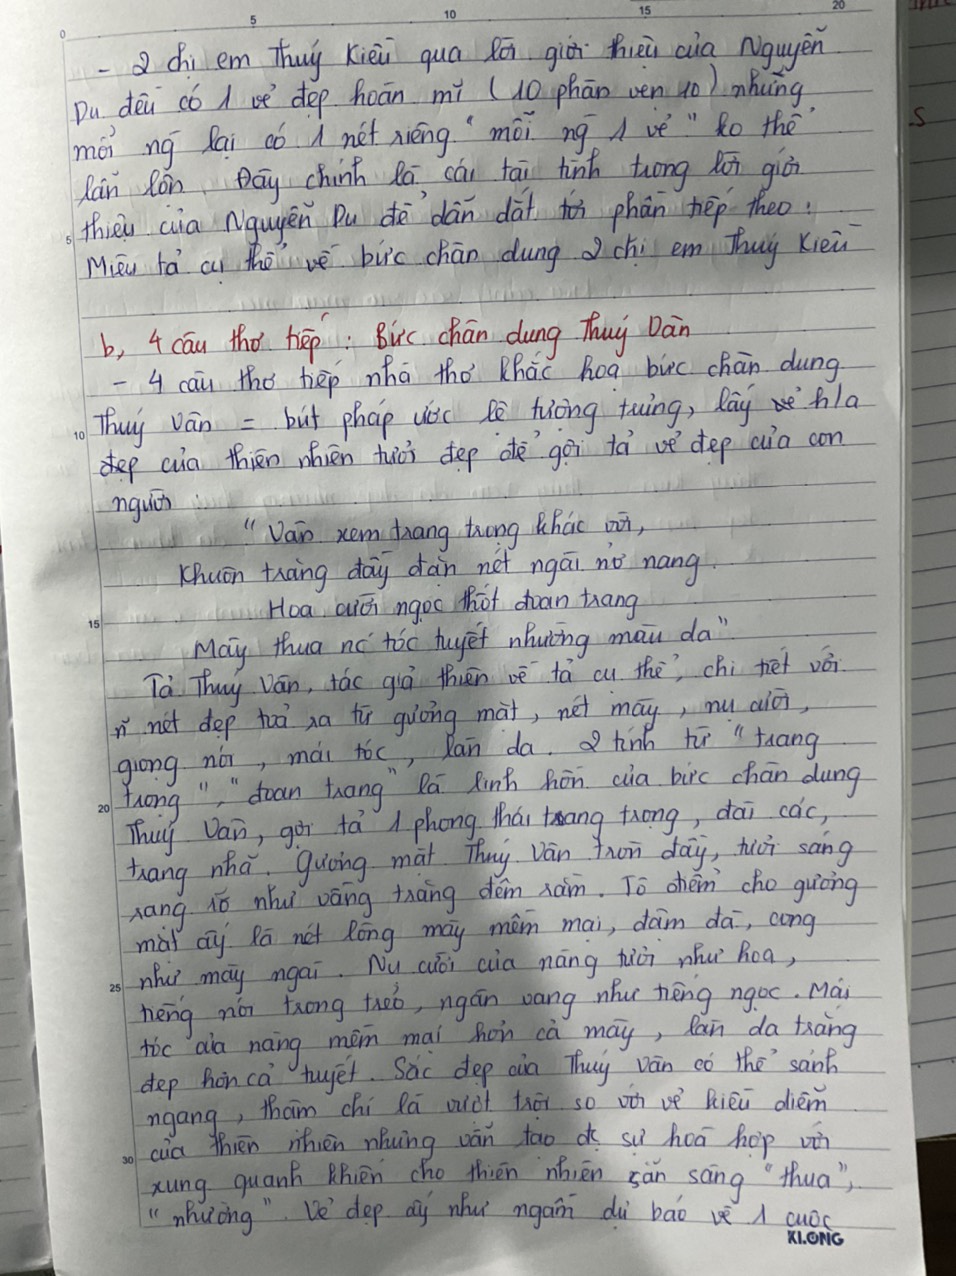 0 5 10 15 20
- 2 chị em Thuý Kiều qua lời giới thiệu của Nguyễn
Du đều có 1 vẻ đẹp hoàn mĩ (10 phân vẹn 10) nhưng
mỗi ng lại có 1 nét riêng "mỗi ng 1 vẻ" ko thể
lẫn lộn. Đây chính là cái tài tình trong lời giới
5 thiệu của Nguyễn Du để dẫn dắt tới phần tiếp theo:
Miêu tả cụ thể về bức chân dung 2 chị em Thuý Kiều
b, 4 câu thơ tiếp: Bức chân dung Thuý Vân
- 4 câu thơ tiếp nhà thơ khắc hoạ bức chân dung
10 Thuý Vân = bút pháp ước lệ tượng trưng, lấy h/a
đẹp của thiên nhiên tươi đẹp để gợi tả vẻ đẹp của con
người:
"Vân xem trang trọng khác vời,
Khuôn trăng đầy đặn nét ngài nở nang.
15 Hoa cười ngọc thốt đoan trang
Mây thua nc tóc tuyết nhường màu da"
Tả Thuý Vân, tác giả thiên về tả cụ thể, chi tiết với
n~ nét đẹp toả ra từ gương mặt, nét mày, nụ cười,
giọng nói, mái tóc, làn da. 2 tính từ "trang
20 trọng", "đoan trang" là linh hồn của bức chân dung
Thuý Vân, gợi tả 1 phong thái trang trọng, đài các,
trang nhã. Gương mặt Thuý Vân tròn đầy, tươi sáng
rạng rỡ như vầng trăng đêm rằm. Tô điểm cho gương
mặt ấy là nét lông mày mềm mại, đậm đà, cong
25 như mày ngài. Nụ cười của nàng tươi như hoa,
tiếng nói trong trẻo, ngân vang như tiếng ngọc. Mái
tóc của nàng mềm mại hơn cả mây, làn da trắng
đẹp hơn cả tuyết. Sắc đẹp của Thuý Vân có thể sánh
ngang, thậm chí là vượt trội so với vẻ kiều diễm
30 của thiên nhiên nhưng vẫn tạo đc sự hoà hợp với
xung quanh khiến cho thiên nhiên sẵn sàng "thua",
"nhường". Vẻ đẹp ấy như ngầm dự báo về 1 cuộc
KLONG